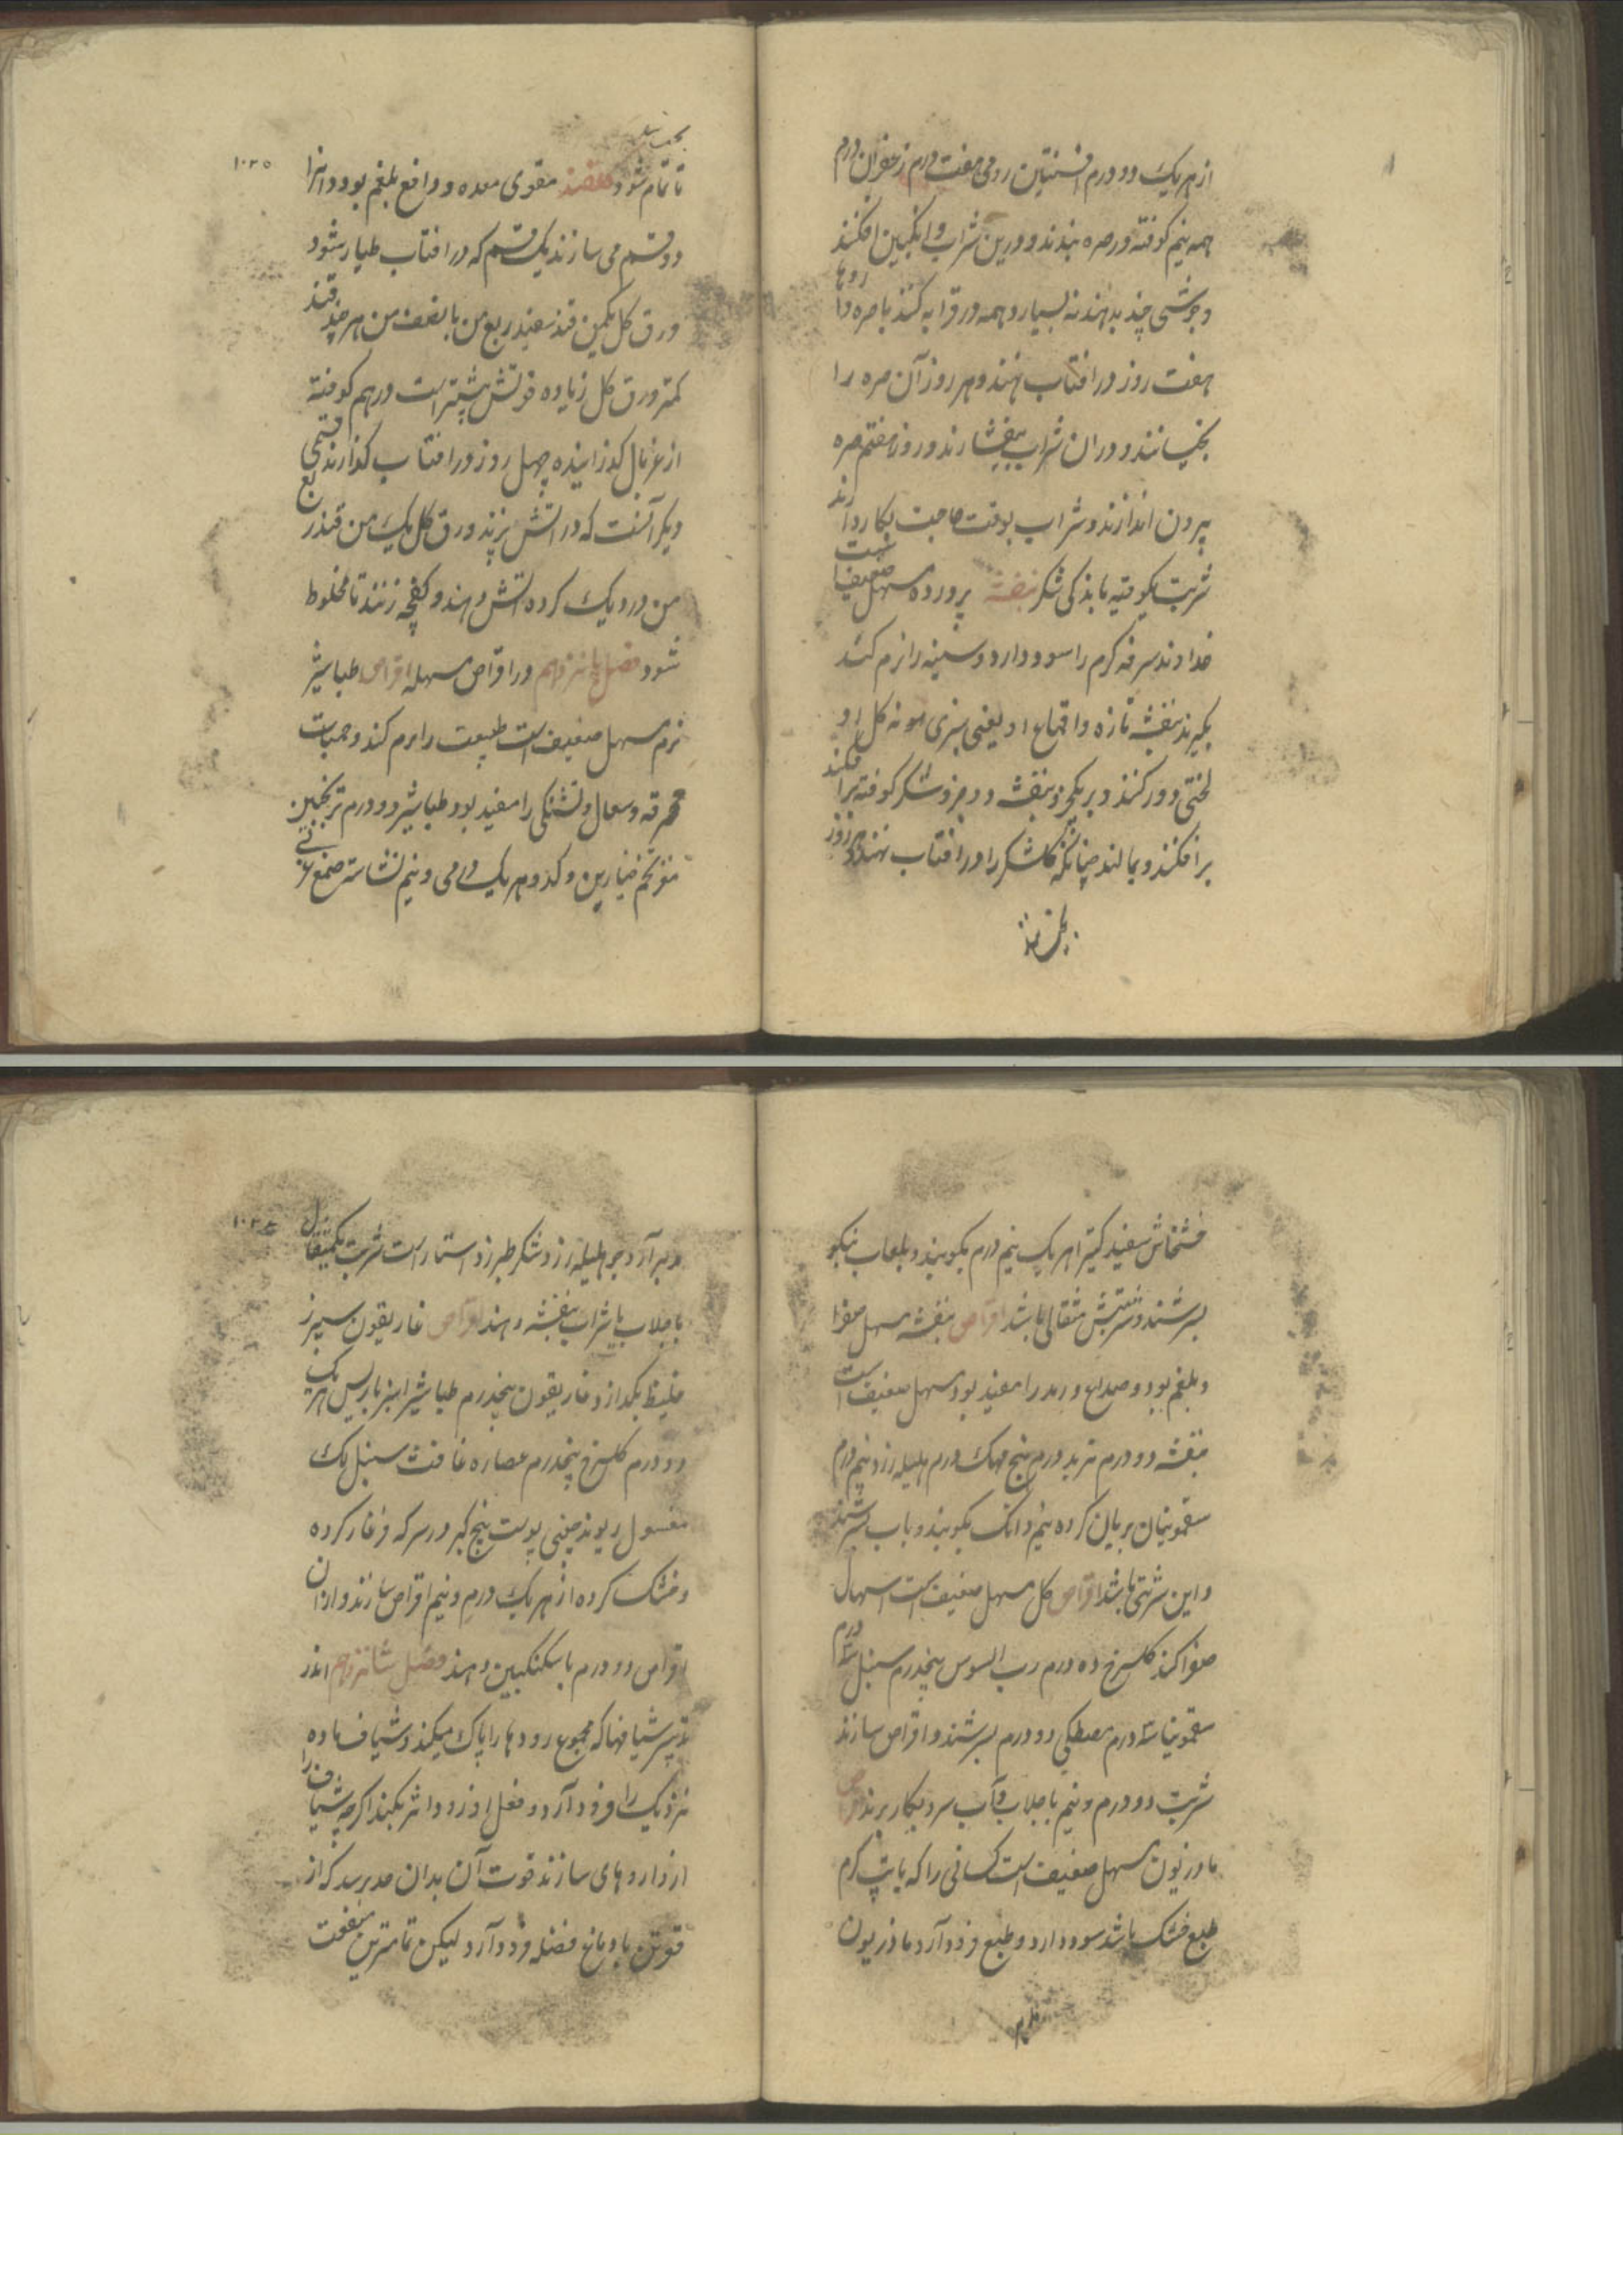 از هر یک دو درم افسنتین رومی هفت درم زعفران درم
همه نیم کوفته در صره بندند و درین شراب و انکبین افکنند
و جوشی چند بدهند نه بسیار و همه در قرابه کنند با صره داروها
هفت روز در افتاب نهند و هر روز آن صره را
بخیسانند و در ان شراب بیفشارند و روز هفتم صره
بیرون اندازند و شراب بوقت حاجت بکار دارند
شربت یکوقیه باندکی شکر بنفشه پرورده مسهل ضعیف است
خداوند سرفه کرم را سود دارد و سینه را نرم کند
بکیرند بنفشه تازه و اقماع او یعنی سبزی بونه کل او
لختی دور کنند و بر یکجزو بنفشه دو جزو شکر کوفته برافکنند
برافکنند و بمالند چنانکه کلشکر را در افتاب نهند روز
تا تمام شود مقوی معده و دافع بلغم بود و انرا
دو قسم می سازند یک قسم که در افتاب طیار شود
ورق کل یکمن قند سفید ربع من یا نصف من هر چند قند
کمتر و ورق کل زیاده قوتش بیشتر است درهم کوفته
از غربال کذرانیده چهل روز در افتاب کذارند قسمی
دیکر آنست که در اتش پزند ورق کل یک من قند ربع
من در دیک کرده اتش دهند و کفچه زنند تا مخلوط
شود فصل پانزدهم در اقراص مسهله اقراص طباشیر
نرم مسهل ضعیف است طبیعت را نرم کند و حمیات
محرقه و سعال و تشنکی را مفید بود طباشیر دو درم ترنجبین
مغز تخم خیارین و کدو هر یک درمی و نیم نشاسته صمغ عربی
خشخاش سفید کتیرا هر یک نیم درم بکوبند و بلعاب بنکو
بسرشند و شربتش مثقالی باشد اقراص بنفشه مسهل صفرا
و بلغم بود و صداع و رمد را مفید بود مسهل ضعیف است
بنفشه دو درم تربد درم بیخ مهک درم هلیله زرد نیم درم
سقمونیان بریان کرده نیم دانک بکوبند و باب بسرشند
و این شربتی باشد اقراص کل مسهل ضعیف است اسهال
صفرا کند کلسرخ ده درم رب السوس پنجدرم سنبل سه درم
سقمونیا سه درم مصطکی دو درم بسرشند و اقراص سازند
شربت دو درم و نیم با جلاب و آب سرد بکار برند اقراص
مازریون مسهل ضعیف است کسانی را که با تپ کرم
طبع خشک باشد سود دارد و طبع فرود آرد مازریون
مدبر آرد جو هلیله زرد شکر طبرزد استار است شربت یکمثقال
با جلاب یا شراب بنفشه دهند اقراص غاریقون سپرز
غلیظ بکدازد غاریقون پنجدرم طباشیر انبرباریس هر یک
دو درم کلسرخ پنجدرم عصاره غافث سنبل لک
مغسول ریوند چینی پوست بیخ کبر در سرکه فرغار کرده
و خشک کرده از هر یک درم و نیم اقراص سازند و ازان
اقراص دو درم با سکنکبین دهند فصل شانزدهم اندر
تدبیر شیافها که مجموع رودها را پاک میکند و شیاف ماده
نزدیک را فرود آرد و فعل او زود اثر بکند اکرچه شیاف را
از داروهای سازند قوت آن بدان حد برسد که از
قوتن یا دماغ فضله فرود آرد لیکن تمامترین منفعت